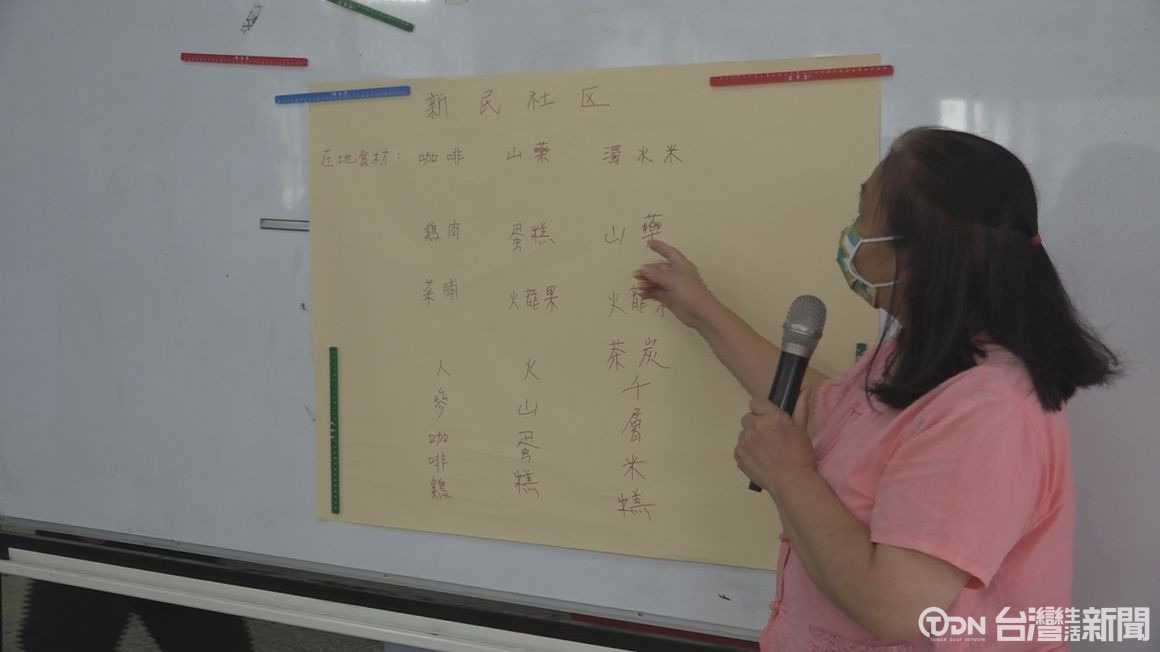 新民社区
在地食材：咖啡 山藥 濁水米
雞肉 蛋糕 山藥
菜脯 火龍果 火龍果
人參咖啡雞
火山蛋糕
茶炭千層米糕
TDN 台灣生活新聞
TAIWAN DAILY NETWORK